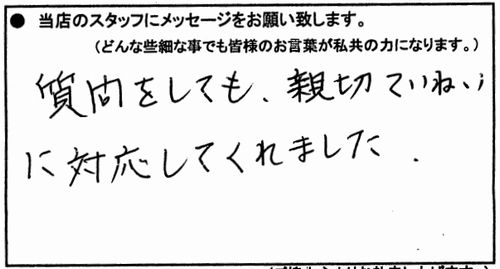 ● 当店のスタッフにメッセージをお願い致します。
（どんな些細な事でも皆様のお言葉が私共の力になります。）
質問をしても、親切ていねい
に対応してくれました．